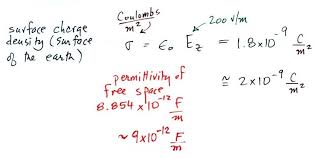 surface charge
density (surface
of the earth)
Coulombs
m²
σ = ε₀ E_z = 1.8×10⁻⁹ C/m²
200 V/m
≅ 2×10⁻⁹ C/m²
permittivity of
free space
8.854×10⁻¹² F/m
~ 9×10⁻¹² F/m